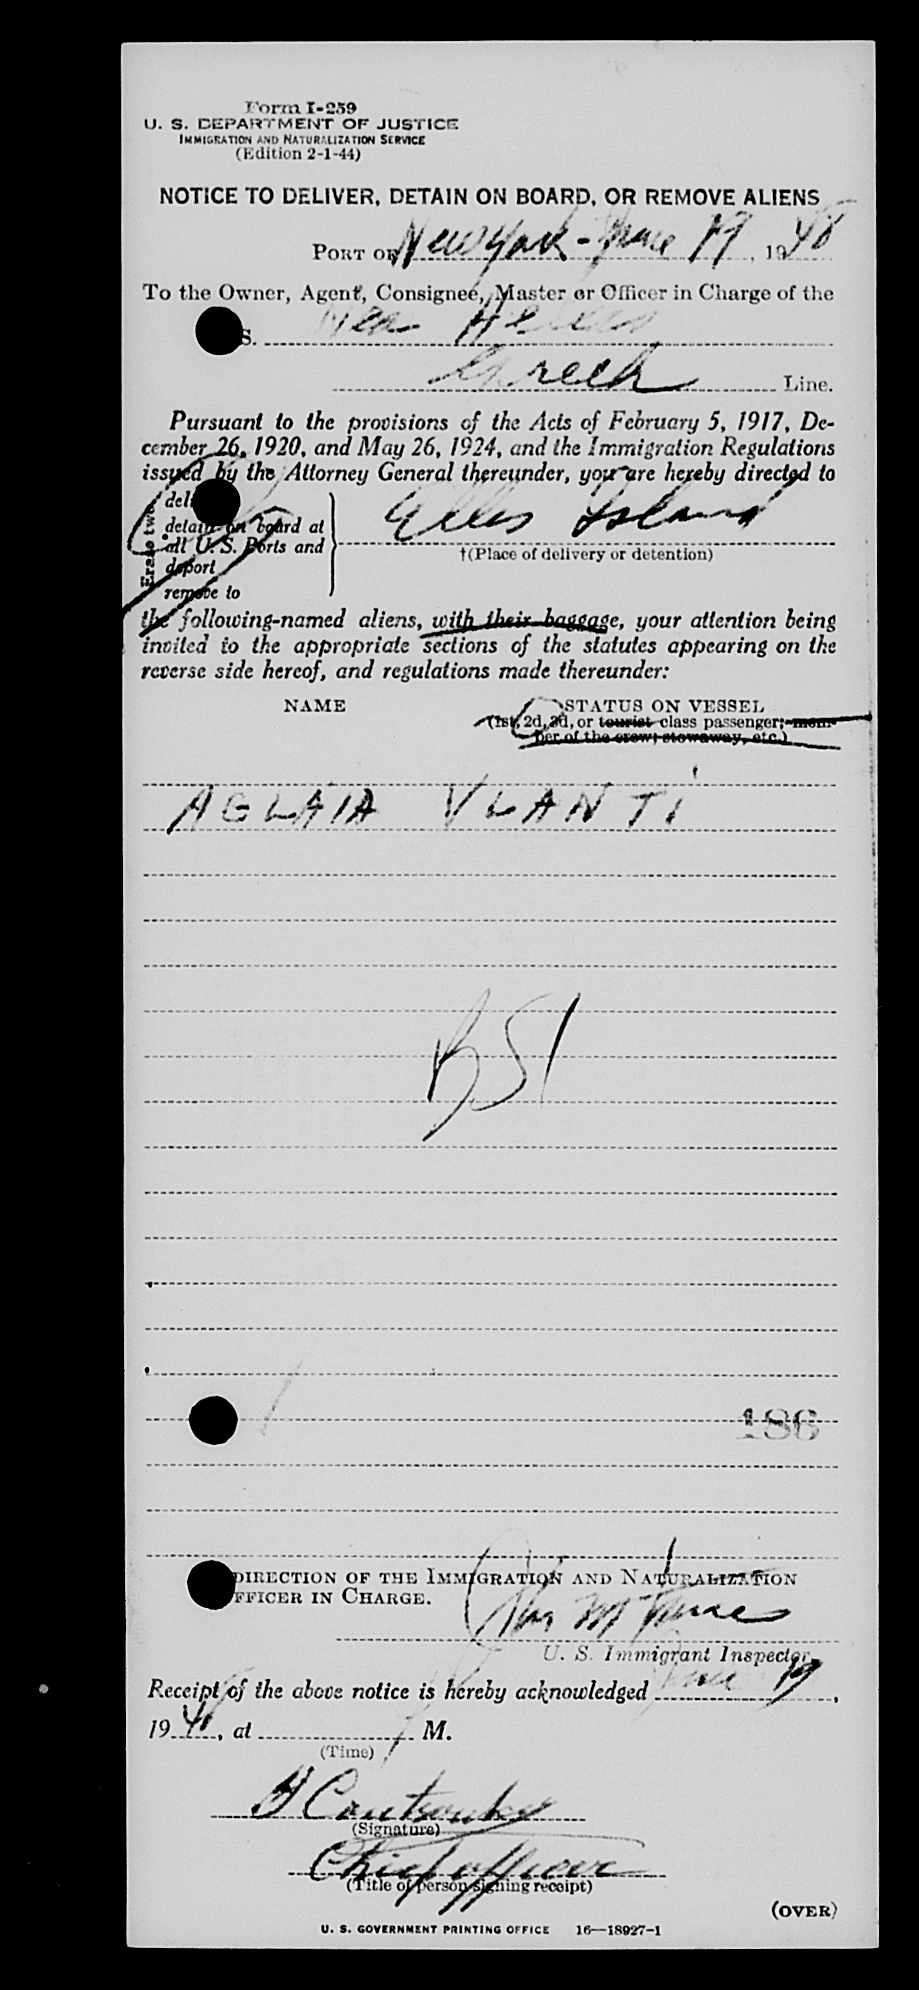 Form I-259
U. S. DEPARTMENT OF JUSTICE
IMMIGRATION AND NATURALIZATION SERVICE
(Edition 2-1-44)
NOTICE TO DELIVER, DETAIN ON BOARD, OR REMOVE ALIENS
PORT OF New York - June 19, 1948
To the Owner, Agent, Consignee, Master or Officer in Charge of the
S. Nea Hellas
Greek Line.
Pursuant to the provisions of the Acts of February 5, 1917, De-
cember 26, 1920, and May 26, 1924, and the Immigration Regulations
issued by the Attorney General thereunder, you are hereby directed to
Erase two
deli
detain on board at
all U. S. Ports and
deport
remove to
Ellis Island
†(Place of delivery or detention)
the following-named aliens, with their baggage, your attention being
invited to the appropriate sections of the statutes appearing on the
reverse side hereof, and regulations made thereunder:
NAME STATUS ON VESSEL
(1st, 2d, 3d, or tourist class passenger; mem-
ber of the crew; stowaway, etc.)
AGLAIA VLANTI
BSI
186
DIRECTION OF THE IMMIGRATION AND NATURALIZATION
FFICER IN CHARGE.
U. S. Immigrant Inspector.
Receipt of the above notice is hereby acknowledged June 19,
1948, at M.
(Time)
(Signature)
Chief officer
(Title of person signing receipt)
(OVER)
U. S. GOVERNMENT PRINTING OFFICE 16—18927-1